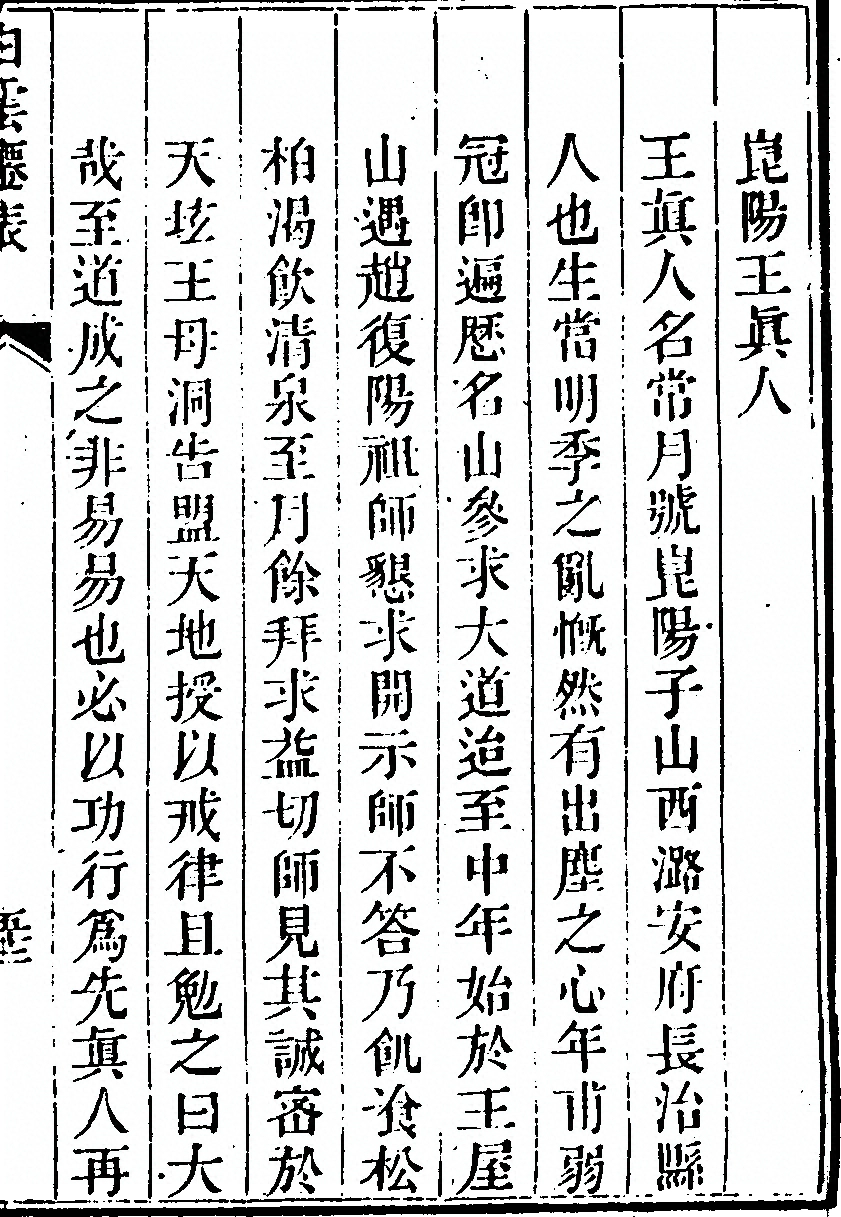 崑陽王眞人
王眞人名常月號崑陽子山西潞安府長治縣
人也生當明季之亂慨然有出塵之心年甫弱
冠卽遍歷名山參求大道迨至中年始於王屋
山遇趙復陽祖師懇求開示師不答乃飢飡松
柏渴飲清泉至月餘拜求益切師見其誠密於
天坛王母洞告盟天地授以戒律且勉之曰大
哉至道成之非易易也必以功行爲先眞人再
白雲
表